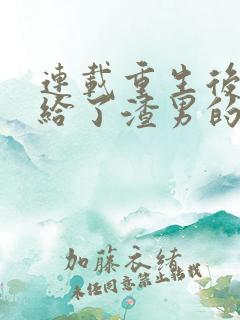 連載重生後
給了渣男的
加藤衣緒
未任同意禁止轉載